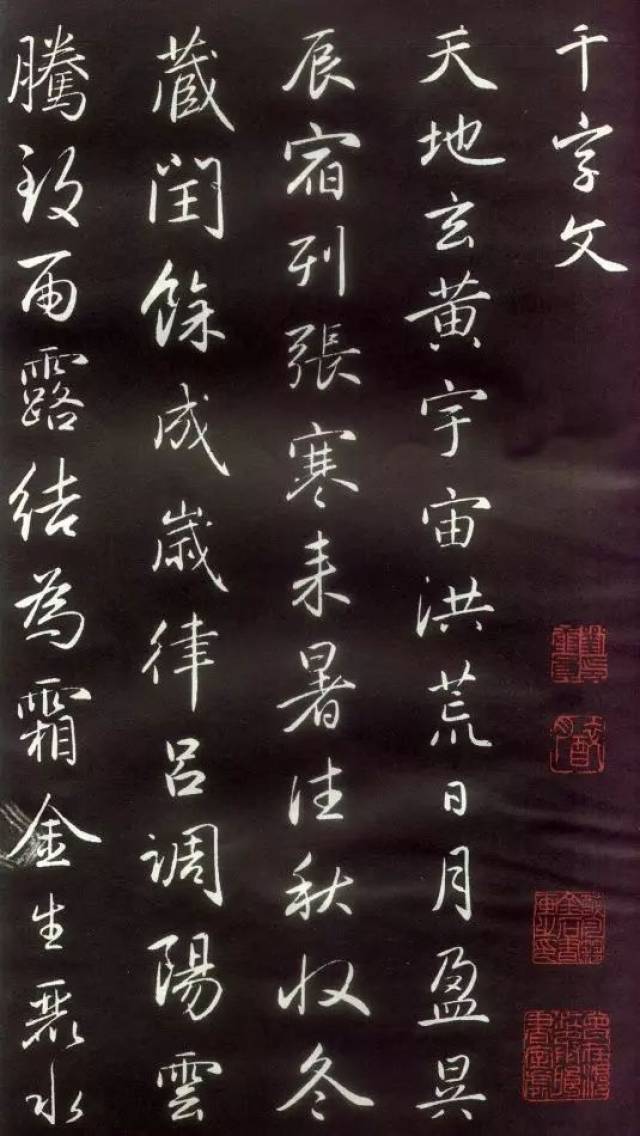 千字文
天地玄黄宇宙洪荒日月盈昃
辰宿列張寒来暑往秋收冬
藏閏餘成歲律呂調陽雲
騰致雨露結為霜金生麗水